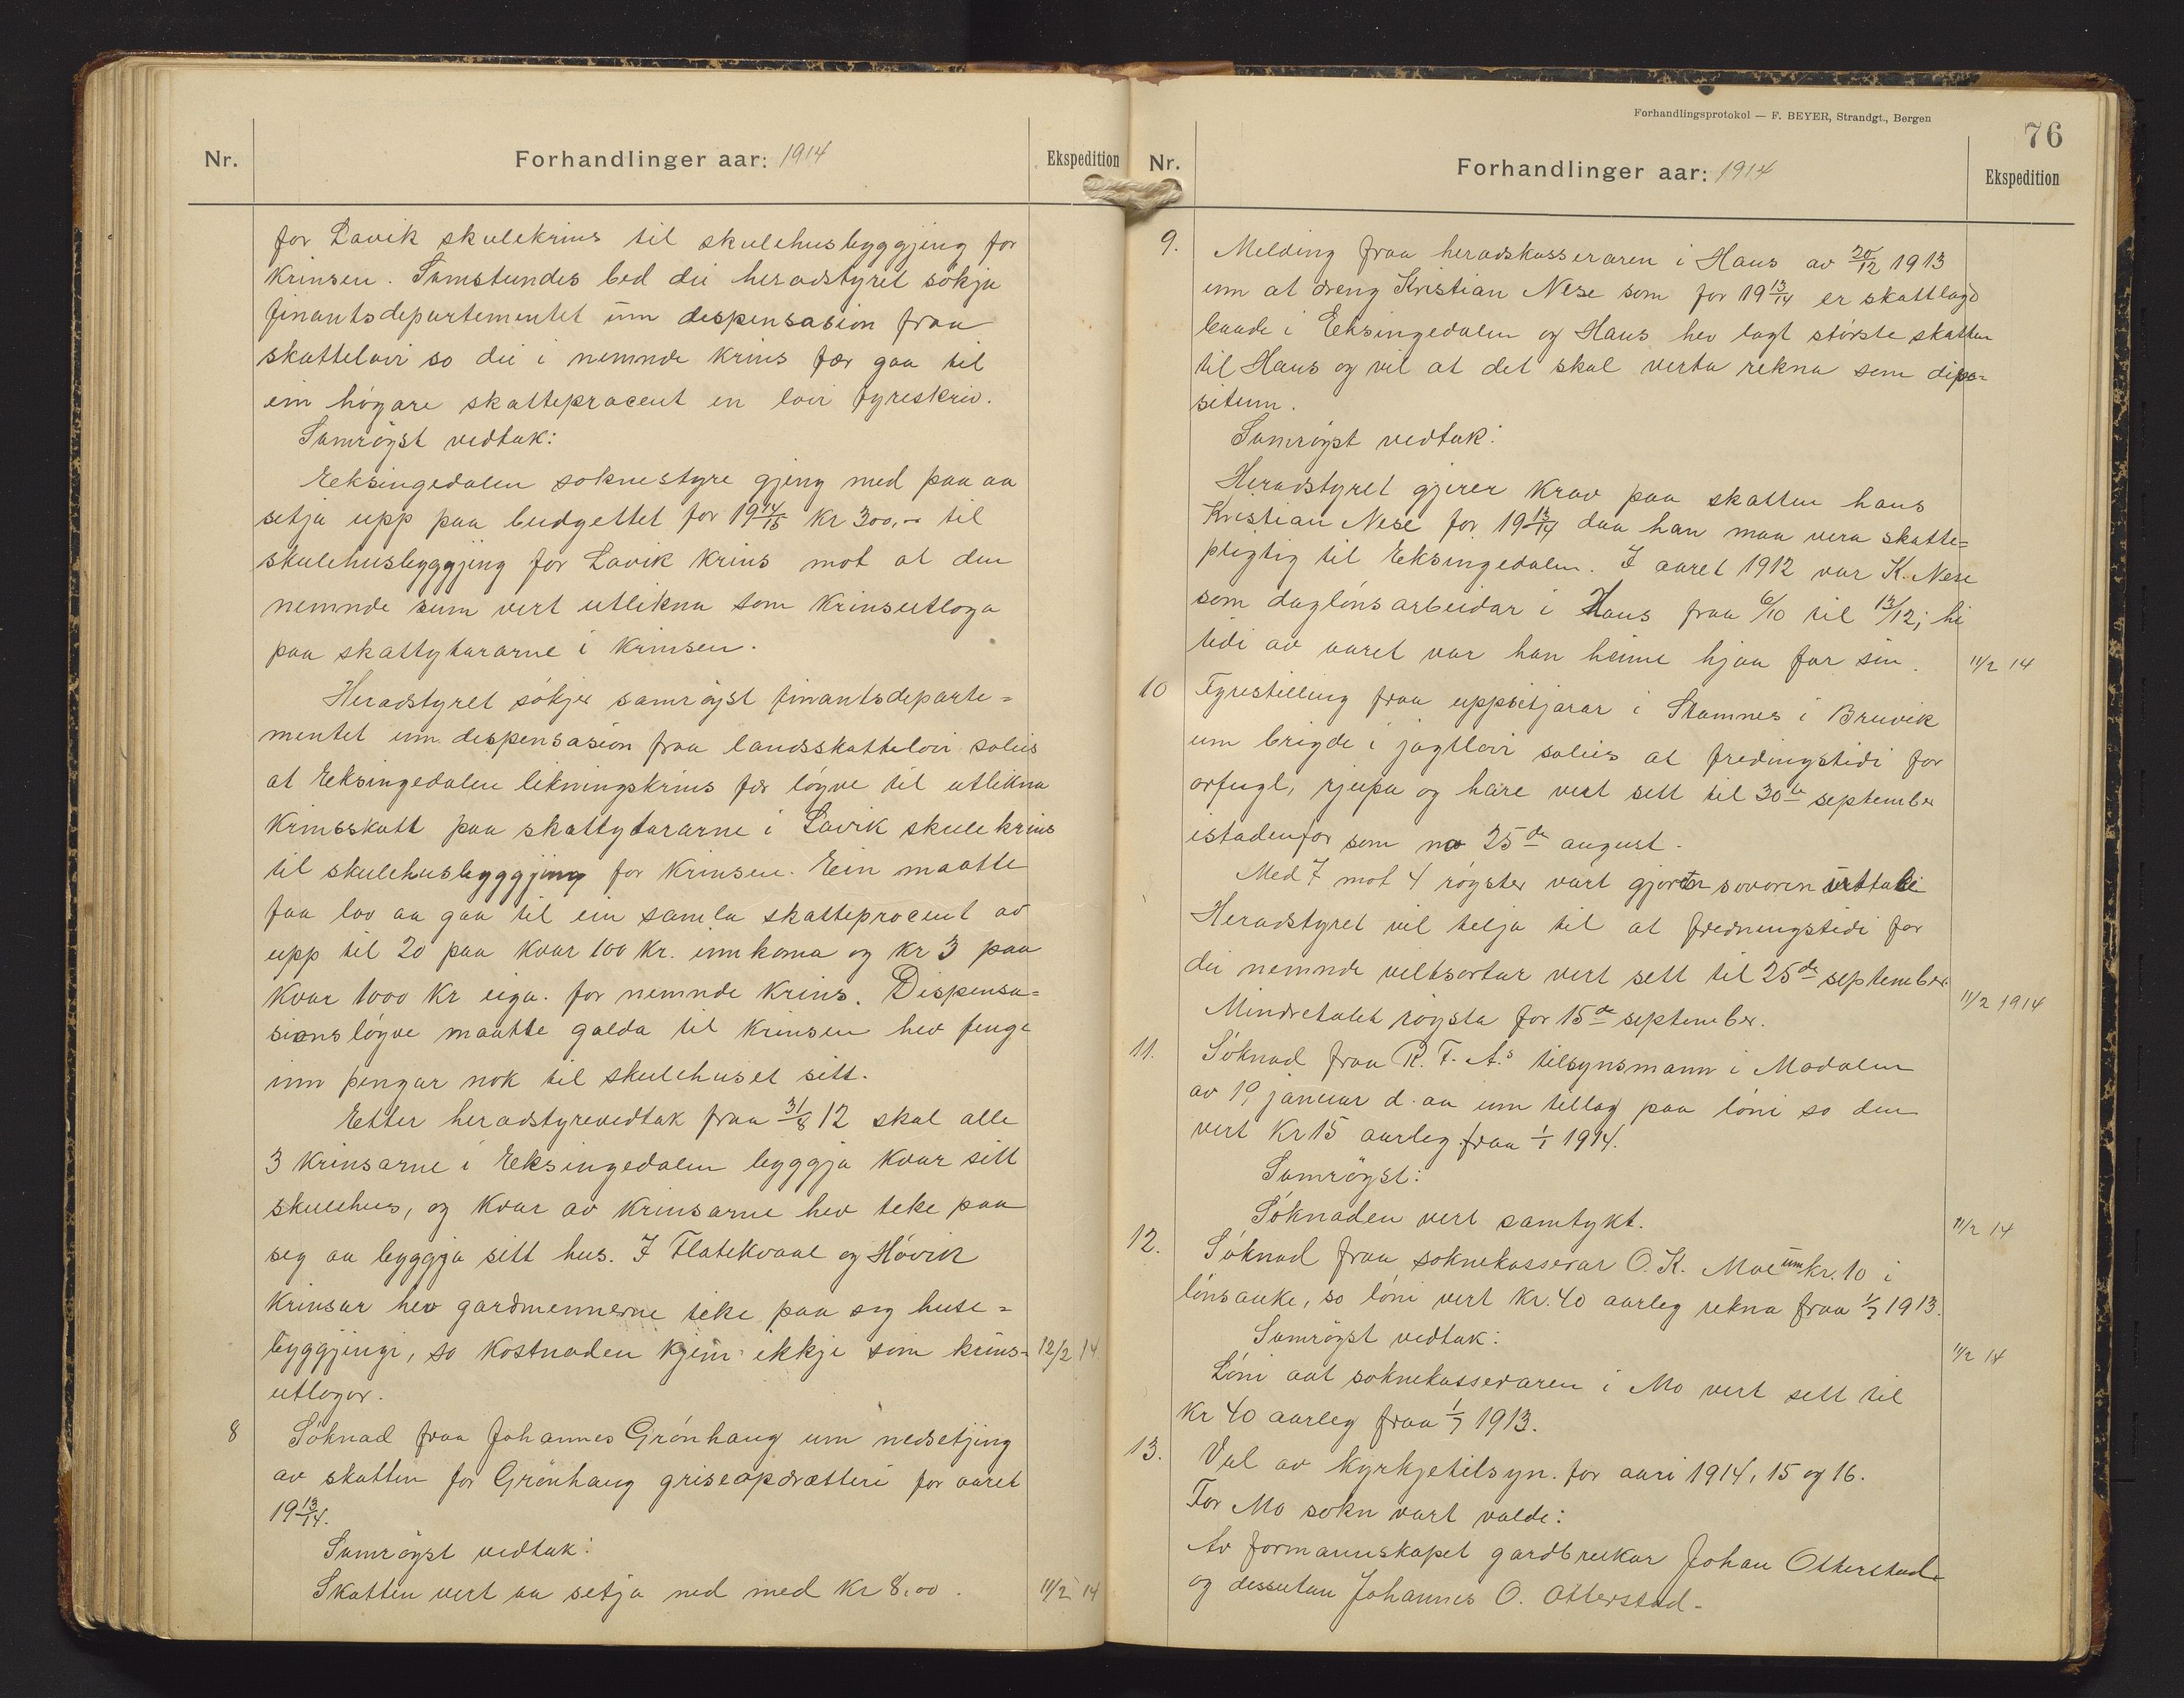 Nr.
Forhandlinger aar: 1914
Ekspedition
for Lavik skulekrins til skulehusbyggjing for
krinsen. Samstundes bed dei heradstyret søkja
finantsdepartementet um dispensasion fraa
skattelovi so dei i nemnde krins fær gaa til
ein høgare skatteprocent en lovi fyreskriv.
Samrøyst vedtak:
Eeksingedalen soknestyre gjeng med paa aa
setja upp paa budgettet for 19 14/15 kr 300,- til
skulehusbyggjing for Lavik krins mot at den
nemnde sum vert utlikna som krinsutloga
paa skattytararne i krinsen.
Heradstyret søkjer samrøyst finantsdeparte=
mentet um dispensasion fraa landsskattelovi soleis
at Eeksingedalen likningskrins fær løyve til utlikna
krinsskatt paa skattytararne i Lavik skulekrins
til skulehusbyggjing for krinsen. Ein maatte
faa lov aa gaa til ein samla skatteprocent av
upp til 20 paa kvar 100 kr. innkoma og kr 3 paa
kvar 1000 kr eiga. for nemnde krins. Dispensa=
sionsløyve maatte gjelda til krinsen hev fenge
inn pengar nok til skulehuset sitt.
Etter heradstyrevedtak fraa 31/8 12 skal alle
3 krinsarne i Eeksingedalen byggja kvar sitt
skulehus, og kvar av krinsarne hev teke paa
seg aa byggja sitt hus. I Flatekvaal og Høvik
krinsar hev gardmennerne teke paa seg huse=
byggjingi, so kostnaden kjem ikkje som krins=
12/2 14
utlogor.
8
Søknad fraa Johannes Grønhaug um nedsetjing
av skatten for Grønhaug griseopdrætteri for aaret
19 13/14.
Samrøyst vedtak:
Skatten vert aa setja ned med kr 8,00.
11/2 14
Forhandlingsprotokol — F. BEYER, Strandgt., Bergen
76
Nr.
Forhandlinger aar: 1914
Ekspedition
9.
Melding fraa heradskasseraren i Haus av 20/12 1913
um at dreng Kristian Nese som for 19 13/14 er skattlagd
baade i Eeksingedalen og Haus hev lagt største skatten
til Haus og vil at det skal verta rekna som depo=
situm.
Samrøyst vedtak:
Heradstyret gjerer krav paa skatten hans
Kristian Nese for 19 13/14 daa han maa vera skatte=
pligtig til Eeksingedalen. I aaret 1912 var K. Nese
som dagløns arbeidar i Haus fraa 6/10 til 13/12; hi
tidi av aaret var han heime hjaa far sin.
11/2 14
10
Fyrestilling fraa uppsitjarar i Stamnes i Bruvik
um brigde i jagtlovi soleis at fredingstidi for
orfugl, rjupa og hare vert sett til 30te september
istadenfor som no 25de august.
Med 7 mot 4 røyster vart gjort sovoren uttale
Heradstyret vil telja til at fredningstidi for
dei nemnde viltsortar vert sett til 25de september.
Mindretalet røysta for 15de september.
11/2 1914
11.
Søknad fraa R. T. A.s tilsynsmann i Modalen
av 19 januar d. aa um tillag paa løni so den
vert kr 15 aarleg fraa 1/1 1914.
Samrøyst:
Søknaden vert samtykt.
11/2 14
12.
Søknad fraa soknekasserar O. K. Moe um kr. 10 i
lønsauke, so løni vert kr. 40 aarleg rekna fraa 1/7 1913.
Samrøyst vedtak:
11/2 14
Løni aat soknekasseraren i Mo vert sett til
kr 40 aarleg fraa 1/7 1913.
13.
Val av kyrkjetilsyn. for aari 1914, 15 og 16.
For Mo sokn vart valde:
Av formannskapet gardbrukar Johan Otterstad
og dessutan Johannes O. Otterstad.